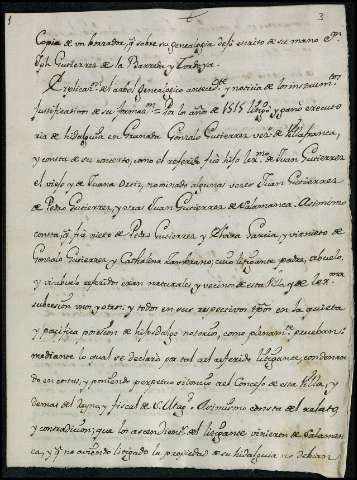 1 3
Copia de un borrador, q sobre su genealogia dejó escrito de su mano Dn
Jph Gutierrez de la Barreda y
Explicazn del arbol genealogico antecedte y noticia de los instrumtos
justificatn de su formazn = Por lo año de 1515 litigó, y ganó executo
ria de hidalguia en Granada Gonzalo Gutierrez vezo de Villafranca,
y consta de su contexto, como el referido fue hijo lexmo de Juan Gutierrez
el viejo y de Juana Ortiz, nominado algunas vezes Juan Gutierrez
de Pedro Gutierrez, y otras Juan Gutierrez de Salamanca. Asimismo
consta q fue nieto de Pedro Gutierrez y Garcia, y visnieto de
Gonzalo Gutierrez y Cathalina Zambrano; cuio litigante, padre, abuelo,
y visabuelo referido eran naturales, y vezinos de esta Villa, y de lexma
subcesion unos y otros: y todos en sus respectivos tpos en la quieta
y pacifica posesion de hijosdalgo notorios, como plenamte prueban:
mediante lo qual se declaró por tal al referido litigante; condenan
do en costas, y poniendo perpetuo silencio al Concejo de esta Villa, y
demas del Reyno, y fiscal de S. Magd. Asimismo consta del relato,
y contradicion; que los ascendientes del litigante vinieron de Salaman
ca, y q no aviendo litigado la propiedad de su hidalguia no debian